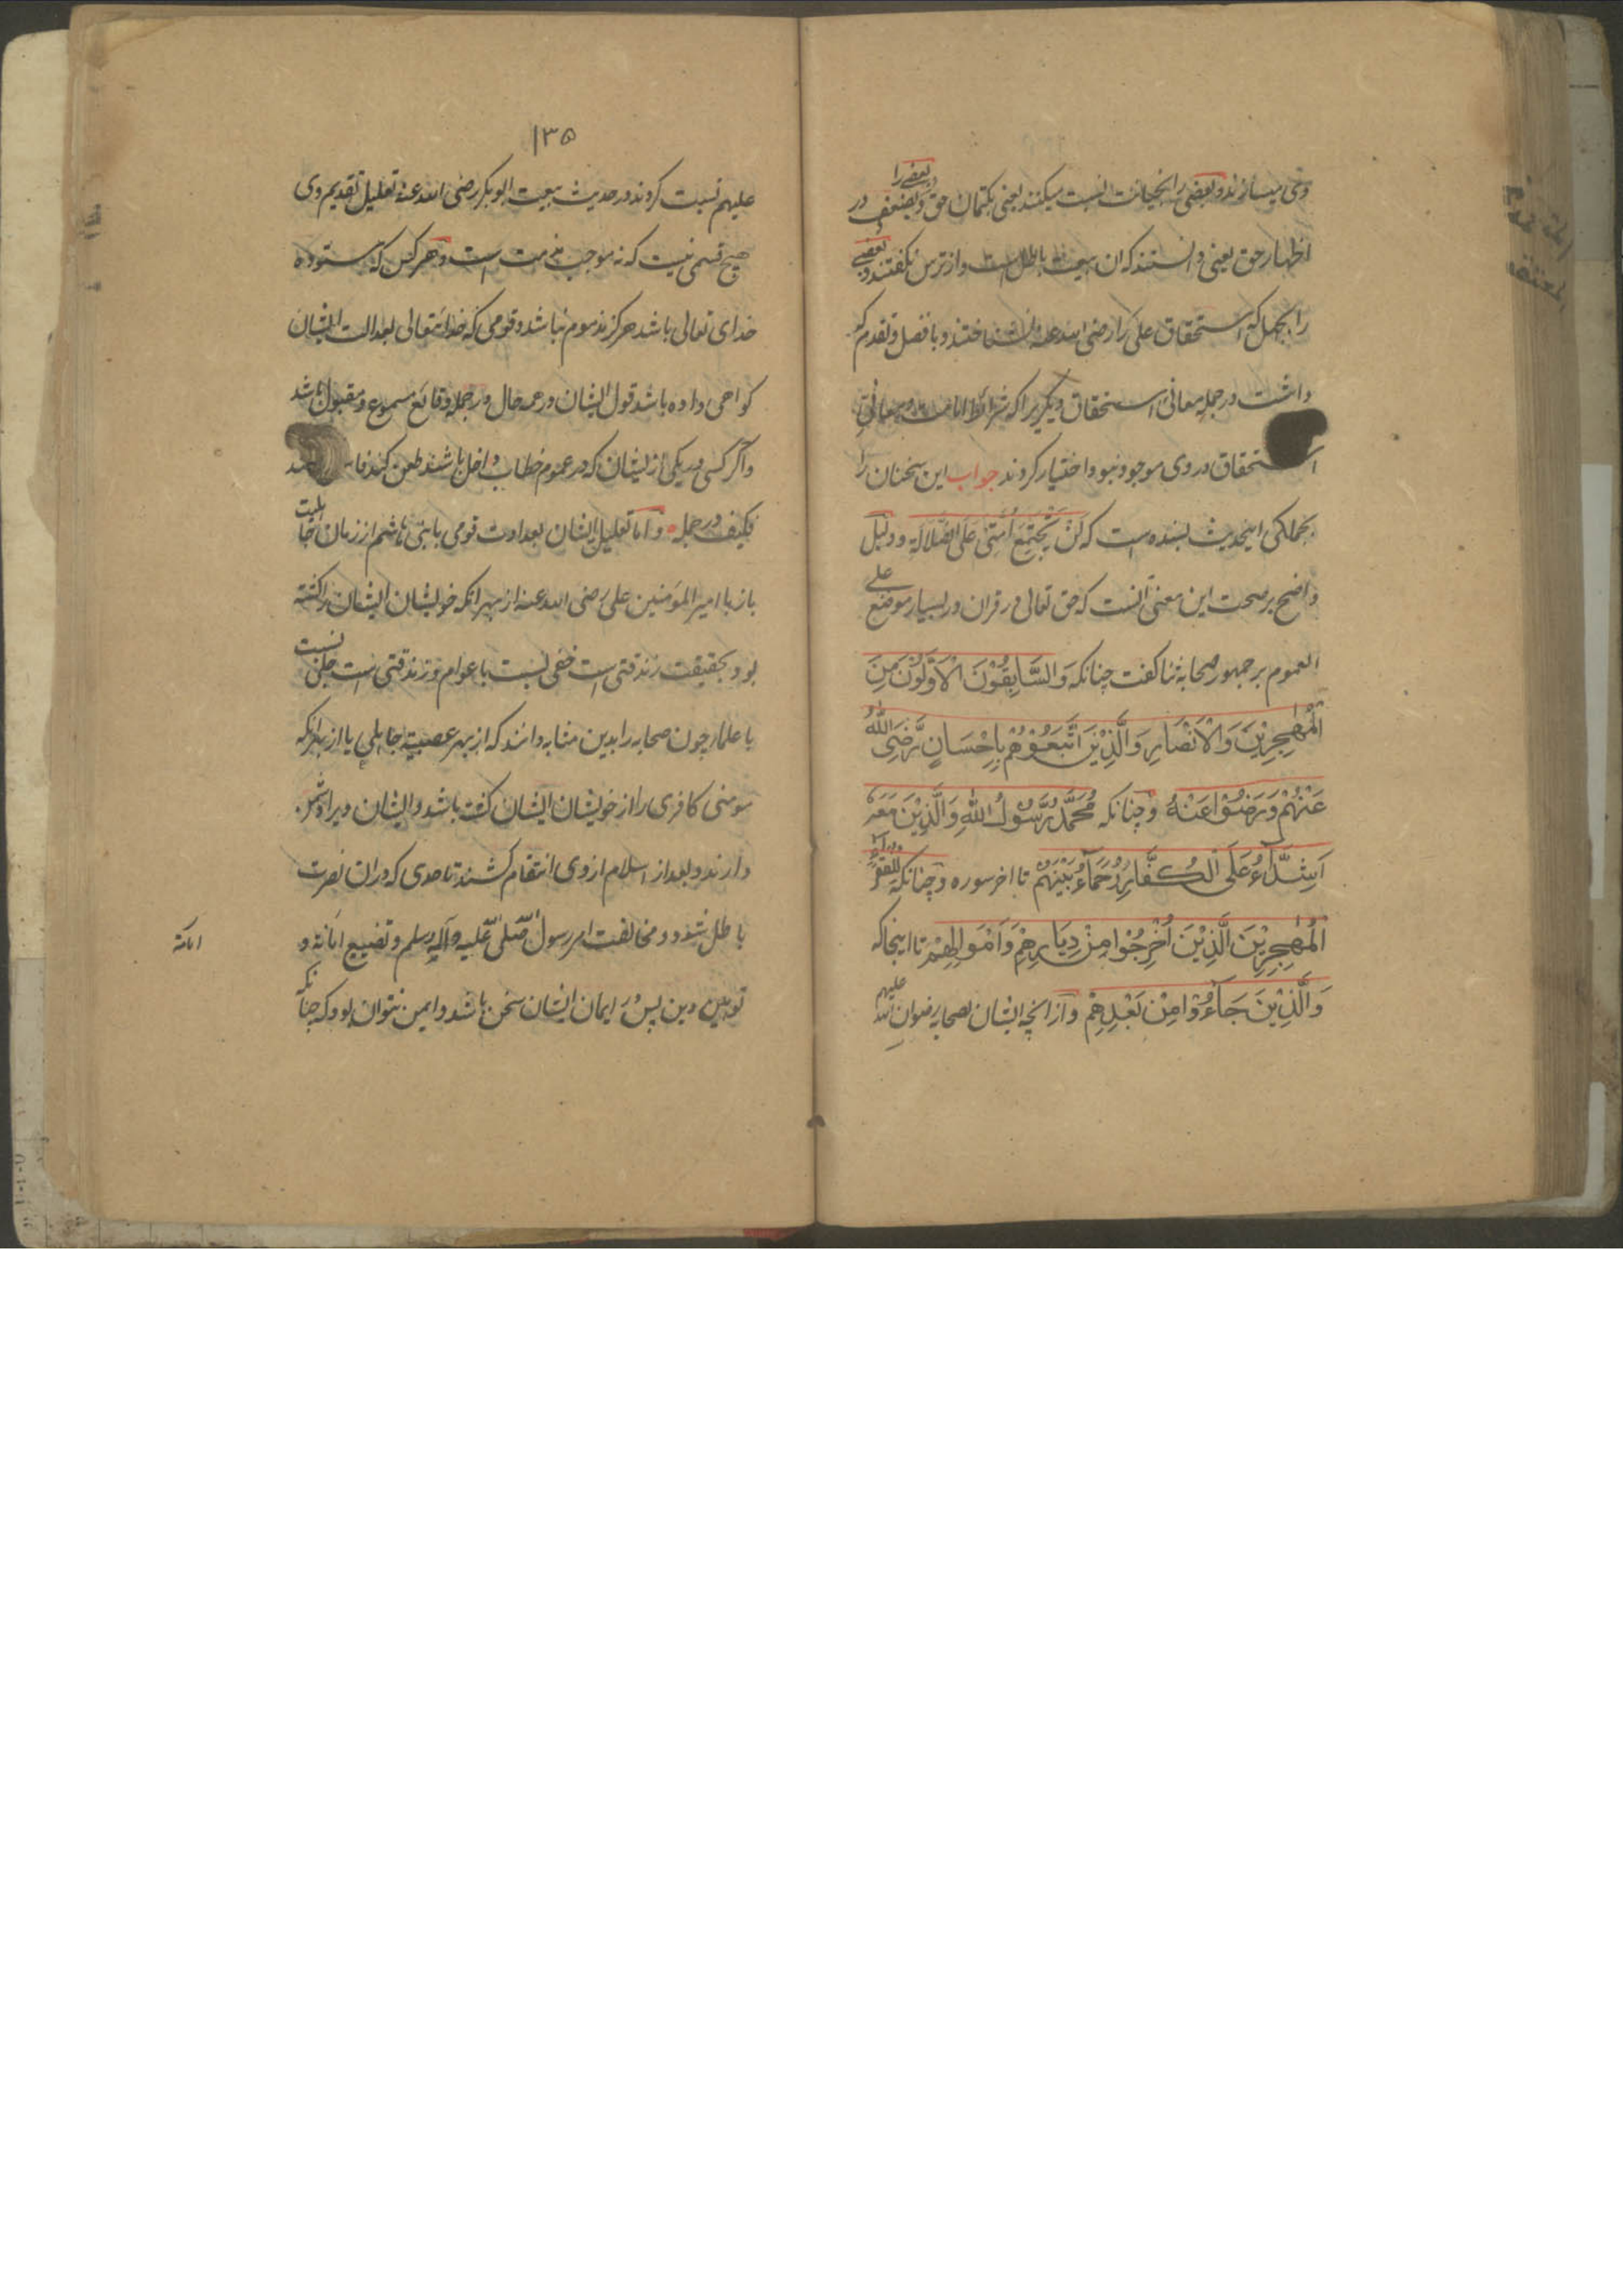 وی میسازند و بعضی را بخیانت نسبت میکنند یعنی بکتمان حق و بعضی را بضعف در
اظهار حق یعنی دانستند که ان بیعت باطل است و از ترس نکفتند و بعضی
را بجهل که استحقاق علی را رضی الله عنه نشناختند و با فضل و تقدم که
داشت در جمله معانی استحقاق دیگریرا که شرائط امامت و معانی
استحقاق در وی موجود نبود اختیار کردند جواب این سخنان را
بجملگی اینحدیث بسنده است که لَنْ یَّجْتَمِعَ اُمَّتِیْ عَلَی الضَّلَالَةِ و دلیل
واضح بر صحت این معنی آنست که حق تعالی در قران در بسیار موضع علی
العموم بر جمهور صحابه ثنا کفت چنانکه وَالسَّابِقُوْنَ الْاَوَّلُوْنَ مِنَ
الْمُهٰجِرِیْنَ وَالْاَنْصَارِ وَالَّذِیْنَ اتَّبَعُوْهُمْ بِاِحْسَانٍ رَّضِیَ اللّٰهُ
عَنْهُمْ وَرَضُوْا عَنْهُ وچنانکه مُحَمَّدٌ رَّسُوْلُ اللّٰهِ وَالَّذِیْنَ مَعَهٗ
اَشِدَّآءُ عَلَی الْکُفَّارِ رُحَمَآءُ بَیْنَهُمْ تا اخر سوره وچنانکه لِلْفُقَرَآءِ
الْمُهٰجِرِیْنَ الَّذِیْنَ اُخْرِجُوْا مِنْ دِیَارِهِمْ وَاَمْوَالِهِمْ تا اینجا که
وَالَّذِیْنَ جَآءُوْا مِنْ بَعْدِهِمْ و از انچه ایشان بصحابه رضوان الله
علیهم
۱۳۵
علیهم نسبت کردند در حدیث بیعت ابوبکر رضی الله عنه تعلیل تقدیم وی
هیچ قسمی نیست که نه موجب مذمت است و هر کس که ستوده
خدای تعالی باشد هرکز مذموم نباشد و قومی که خدایتعالی بعدالت ایشان
کواهی داده باشد قول ایشان در همه حال و در جمله وقائع مسموع و مقبول باشد
و اکر کسی در یکی از ایشان که در عموم خطاب داخل باشند طعن کند
فکیف در جمله و اما تعلیل ایشان بعداوت قومی با بنی هاشم از زمان جاهلیت
باز با امیر المؤمنین علی رضی الله عنه از بهر انکه خویشان ایشان را کشته
بود بحقیقت زندقتی است خفی نسبت با عوام و زندقتی است جلی نسبت
با علما چون صحابه را بدین مثابه دانند که از بهر عصبیت جاهلی یا از بهر انکه
مومنی کافری را از خویشان ایشان کشته باشد و ایشان ویرا دشمن
دارند و بعد از اسلام از وی انتقام کشند تا حدی که در ان نصرت
باطل شود و مخالفت امر رسول صلی الله علیه وآله وسلم و تضییع امانة و
توهین دین پس بر ایمان ایشان سخن باشد و ایمن نتوان بود که چنانکه
امانة